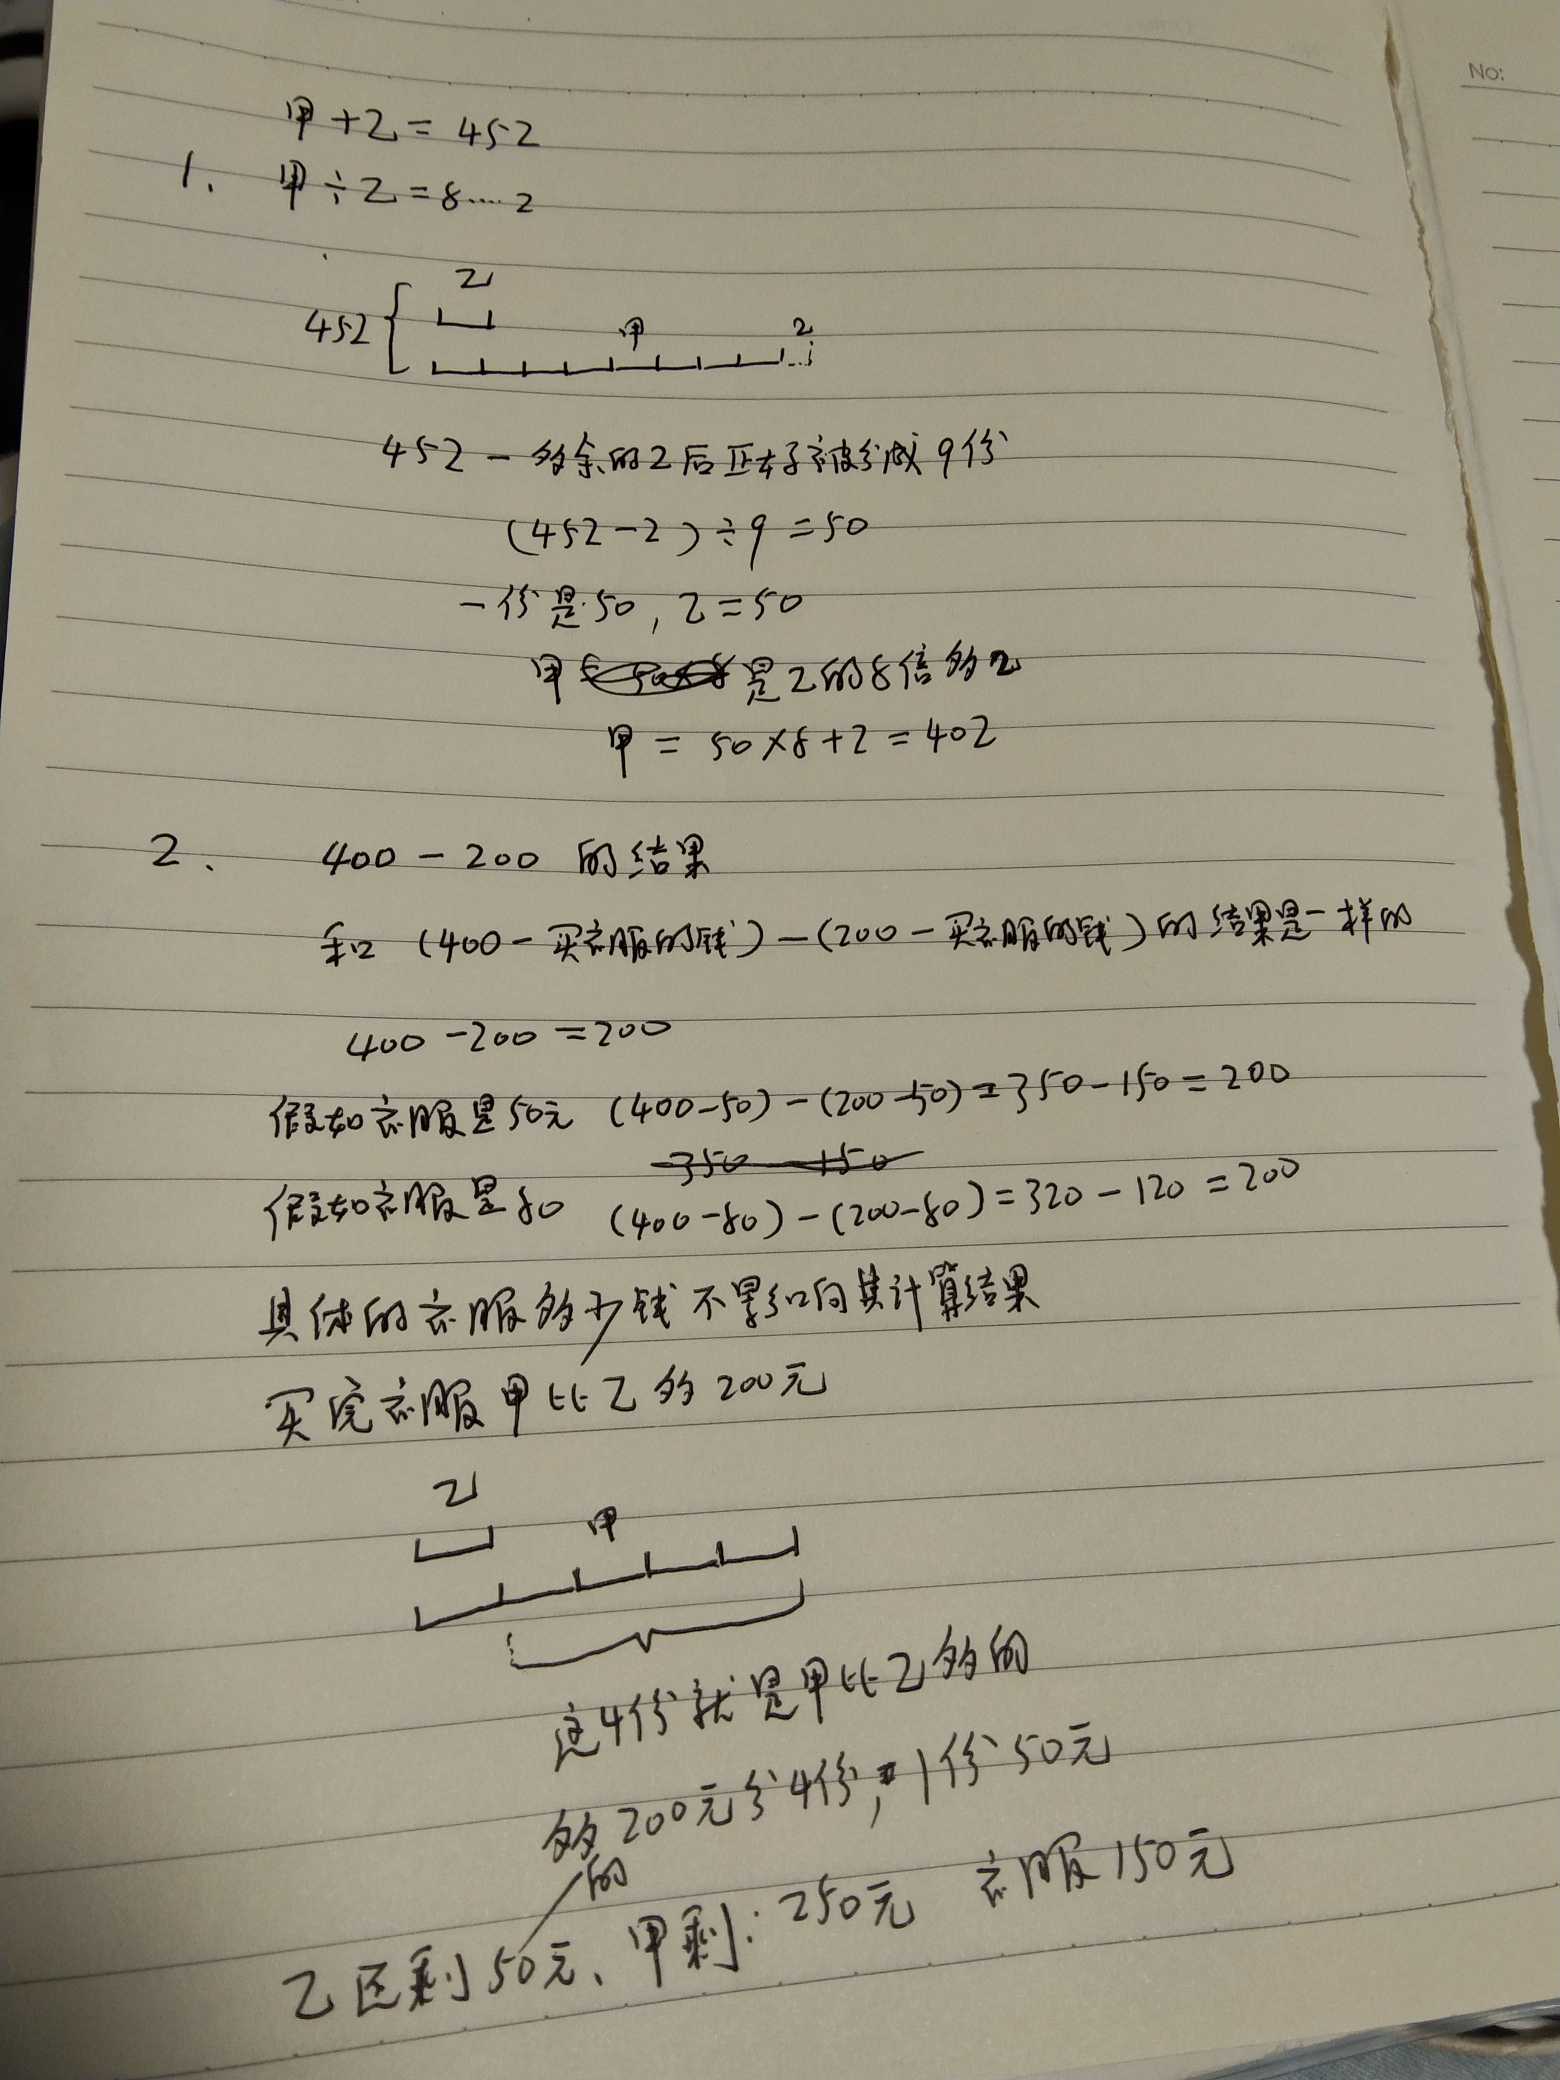 No:
甲+乙=452
1. 甲÷乙=8……2
乙
452 甲 2
452-多余的2后正好被分成9份
(452-2)÷9=50
一份是50,乙=50
甲 是乙的8倍多2
甲=50×8+2=402
2. 400-200 的结果
和 (400-买衣服的钱)-(200-买衣服的钱)的结果是一样的
400-200=200
假如衣服是50元 (400-50)-(200-50)=350-150=200
350 150
假如衣服是80 (400-80)-(200-80)=320-120=200
具体的衣服多少钱不影响其计算结果
买完衣服甲比乙多200元
乙
甲
这4份就是甲比乙多的
多的200元分4份,1份50元
乙还剩50元、甲剩:250元 衣服150元